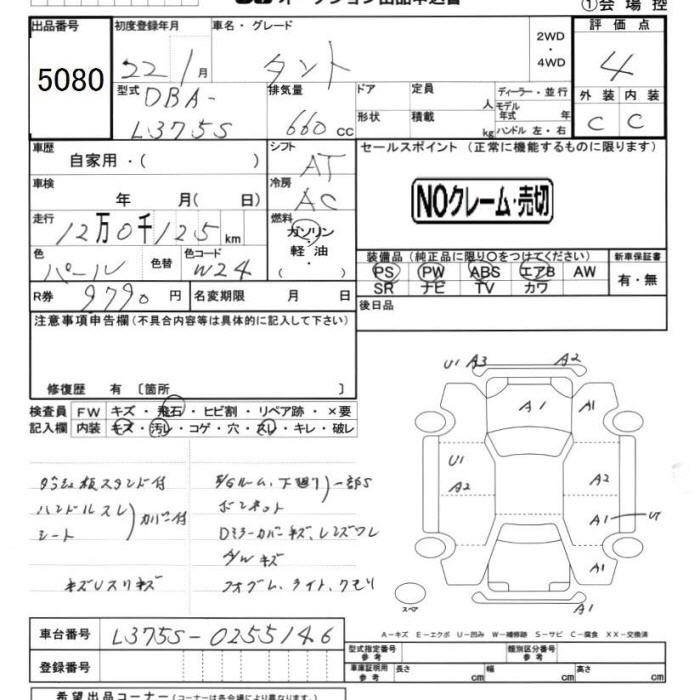 ①会場控
出品番号 初度登録年月 車名・グレード 2WD ・ 4WD 評価点
5080 22 1月 タント 4
型式 DBA- 排気量 ドア 定員 人 ディーラー・並行 外装 内装
L375S 660 CC 形状 積載 kg モデル年式 年 ハンドル 左・右 C C
車歴 シフト セールスポイント (正常に機能するものに限ります)
自家用・( ) AT
車検 冷房
年 月( 日) AC NOクレーム・売切
走行 燃料
12万0千125km ガソリン・軽油・( )
色 色替 色コード 装備品 (純正品に限り○をつけてください) 新車保証書
パール W24 PS PW ABS エアB AW 有・無
R券 9790円 名変期限 月 日 SR ナビ TV カワ
後日品
注意事項申告欄(不具合内容等は具体的に記入して下さい)
修復歴 有 〔箇所 〕
検査員 FW キズ・飛石・ヒビ割・リペア跡・×要
記入欄 内装 キズ・汚レ・コゲ・穴・スレ・キレ・破レ
スタンド付
ハンドルスレ
シート
カバー付
キズUスリキズ
ルーム、下廻り 一部S
ボンネット
Dミラーカバーキズ、レンズワレ
A/Wキズ
フォグム、ライト、クモリ
U1 A3 A2
A1 A1
U1
A2 A2
A1
A1
A1
スペア
A-キズ E-エクボ U-凹み W-補修跡 S-サビ C-腐食 XX-交換済
車台番号 L375S-0255146 型式指定番号 参考 類別区分番号 参考
登録番号 車庫証明用 参考 長さ cm 幅 cm 高さ cm
希望出品コーナー(コーナーは各会場により異なります。)